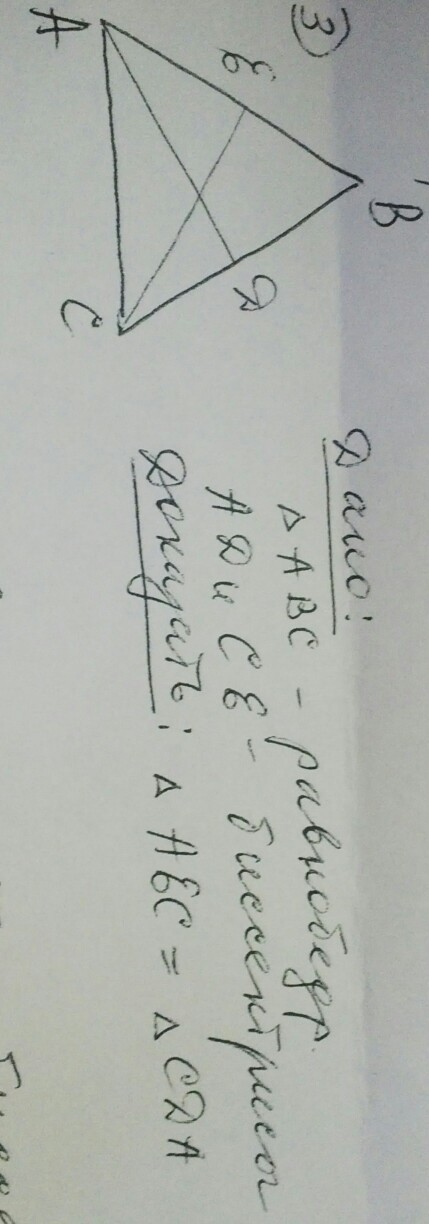 3
B
E
D
A
C
Дано:
△ ABC - равнобедр.
AD и CE - биссектрисы
Доказать: △ AEC = △ CDA